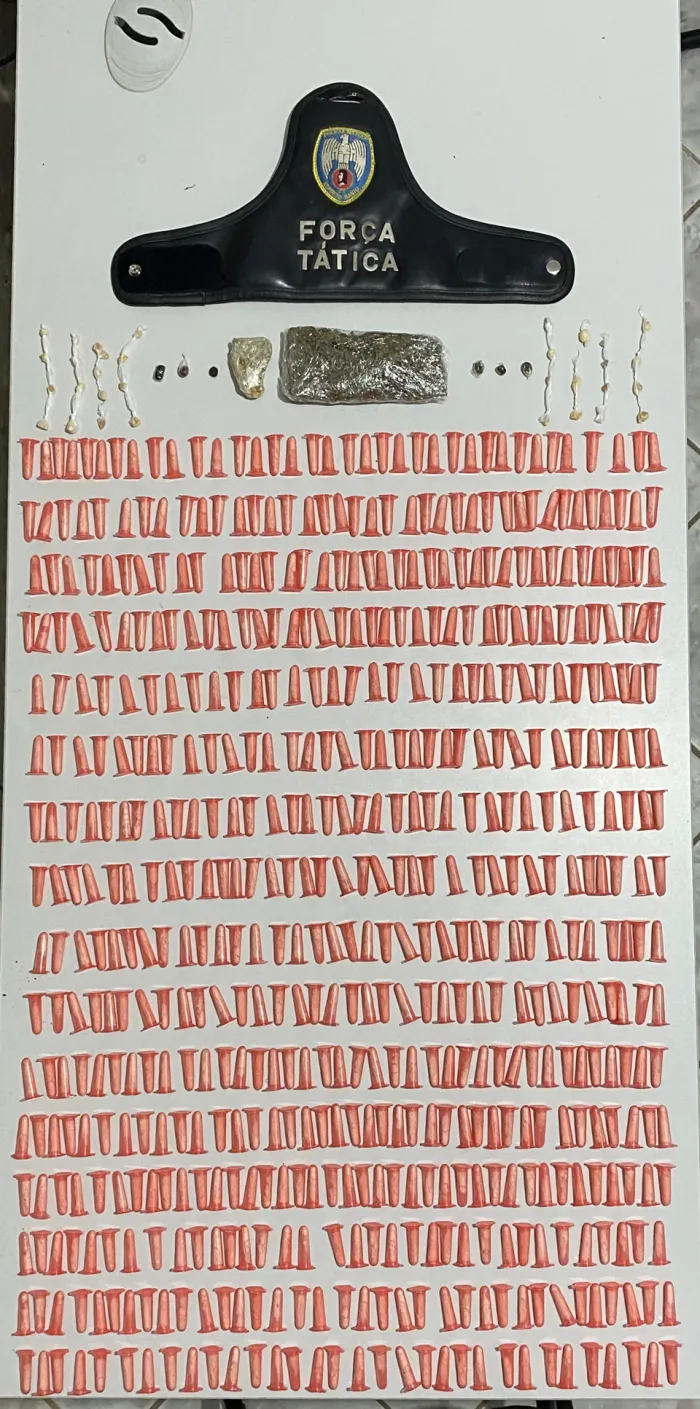 FORÇA
TÁTICA